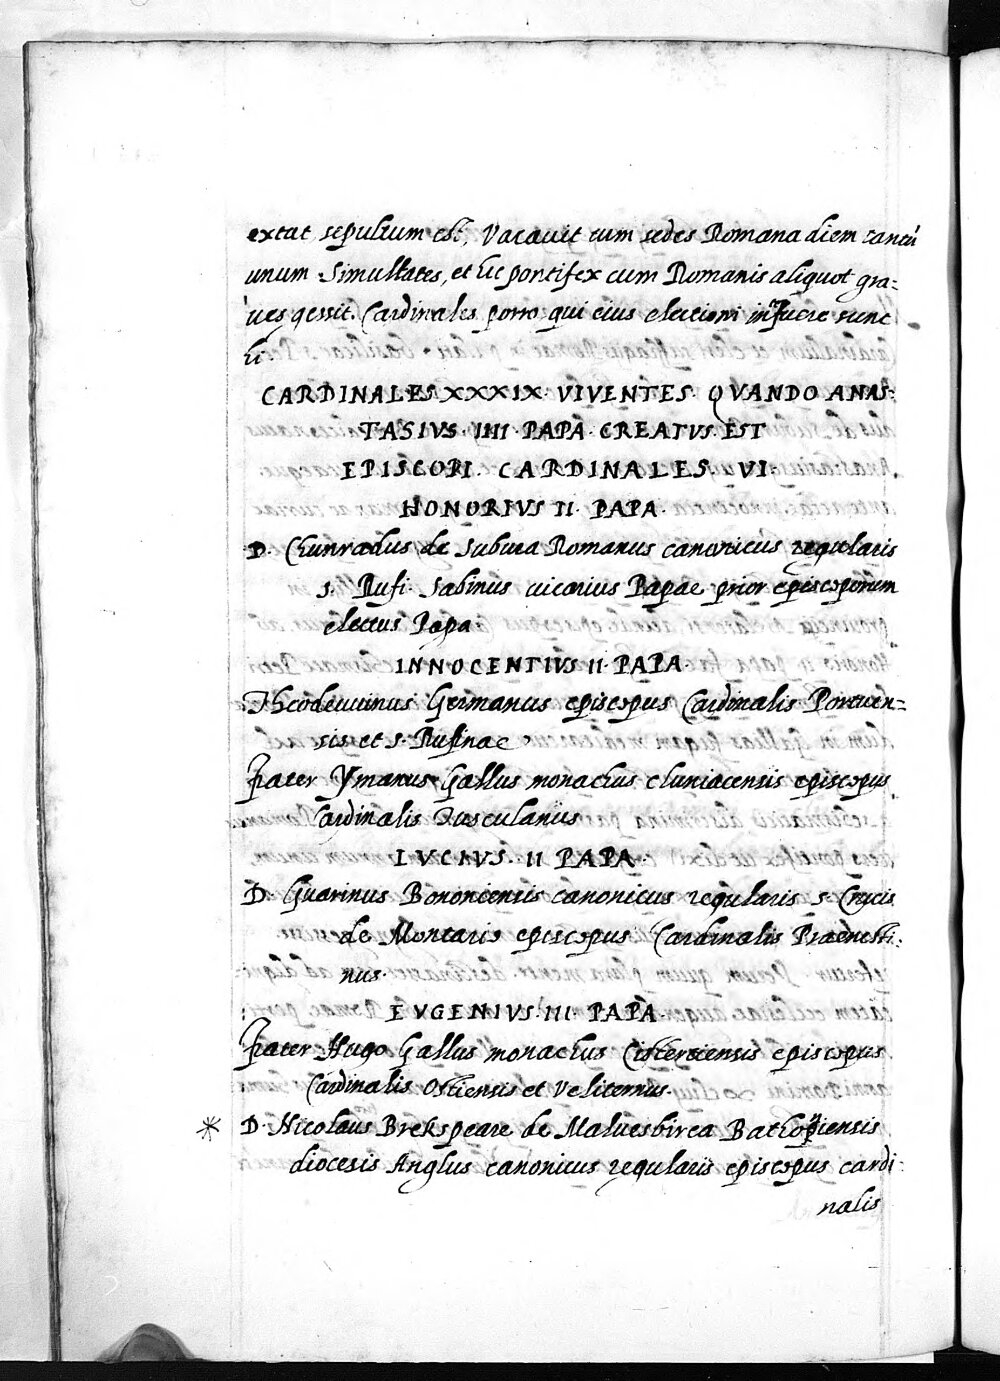 extat sepultum est, Vacavit cum sedes Romana diem tantū
unum Simultates, et hic pontifex cum Romanis aliquot gra=
ves gessit. Cardinales porro qui eius electioni interfuere sunt
hi.
CARDINALES XXXIX. VIVENTES. QVANDO ANAS:
TASIVS. IIII. PAPA. CREATVS. EST
EPISCOPI. CARDINALES. VI.
HONORIVS II. PAPA.
D. Chunradus de Subura Romanus canonicus regularis
s. Rufi. Sabinus vicarius Papae prior episcoporum
electus Papa.
INNOCENTIVS II. PAPA.
Theodeuuinus Germanus episcopus Cardinalis Portuen=
sis et s. Rufinae
Frater Ymarus Gallus monachus Cluniacensis episcopus
Cardinalis Tusculanus
LVCIVS. II PAPA.
D. Guarinus Bononiensis canonicus regularis s. Crucis
de Montaris episcopus Cardinalis Praenesti:
nus.
EVGENIVS. III. PAPA.
Frater Hugo Gallus monachus Cisterciensis episcopus
Cardinalis Ostiensis et Veliternus.
* D. Nicolaus Brekspeare de Malvesbirea Bathoniensis
diocesis Anglus canonicus regularis episcopus cardi:
nalis